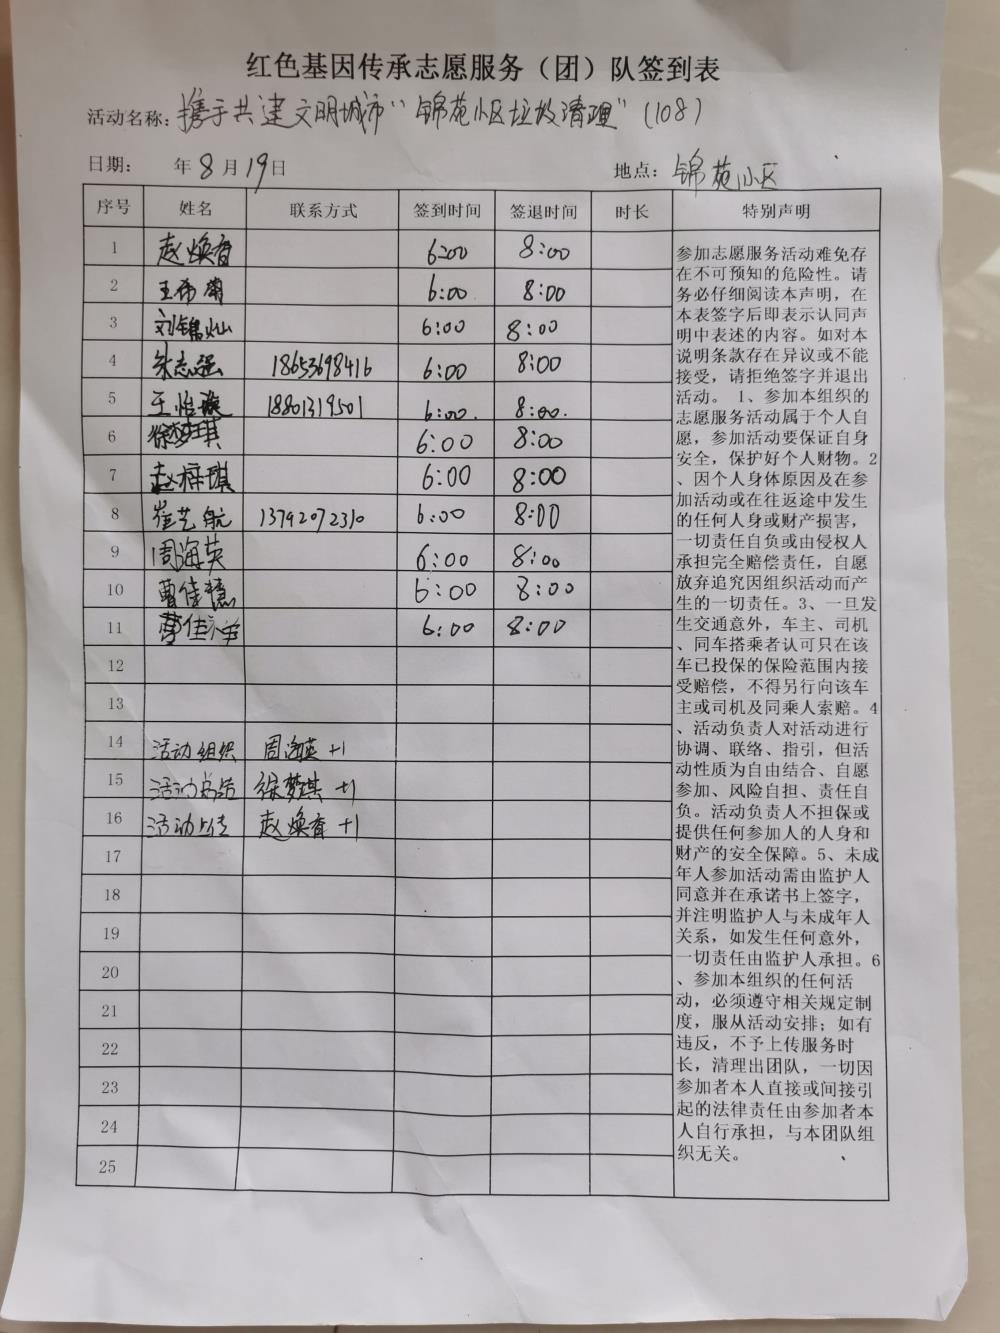 红色基因传承志愿服务（团）队签到表
活动名称：携手共建文明城市“锦苑小区垃圾清理”（108）
日期： 年8月19日 地点：锦苑小区
序号 姓名 联系方式 签到时间 签退时间 时长 特别声明
1 赵焕香 6:00 8:00
2 王希菊 6:00 8:00
3 刘锦灿 6:00 8:00
4 朱志强 18653698416 6:00 8:00
5 王怡璇 18801319501 6:00. 8:00.
6 徐梦琪 6:00 8:00
7 赵梓琪 6:00 8:00
8 崔艺航 13792072310 6:00 8:00
9 周海英 6:00 8:00
10 曹佳慧 6:00 8:00
11 曹佳 6:00 8:00
12
13
14 活动组织 周海英 +1
15 活动总结 徐梦琪 +1
16 活动上传 赵焕香 +1
17
18
19
20
21
22
23
24
25
参加志愿服务活动难免存
在不可预知的危险性。请
务必仔细阅读本声明，在
本表签字后即表示认同声
明中表述的内容。如对本
说明条款存在异议或不能
接受，请拒绝签字并退出
活动。 1、参加本组织的
志愿服务活动属于个人自
愿，参加活动要保证自身
安全，保护好个人财物。2
、因个人身体原因及在参
加活动或在往返途中发生
的任何人身或财产损害，
一切责任自负或由侵权人
承担完全赔偿责任，自愿
放弃追究因组织活动而产
生的一切责任。3、一旦发
生交通意外，车主、司机
、同车搭乘者认可只在该
车已投保的保险范围内接
受赔偿，不得另行向该车
主或司机及同乘人索赔。4
、活动负责人对活动进行
协调、联络、指引，但活
动性质为自由结合、自愿
参加、风险自担、责任自
负。活动负责人不担保或
提供任何参加人的人身和
财产的安全保障。5、未成
年人参加活动需由监护人
同意并在承诺书上签字，
并注明监护人与未成年人
关系，如发生任何意外，
一切责任由监护人承担。6
、参加本组织的任何活
动，必须遵守相关规定制
度，服从活动安排；如有
违反，不予上传服务时
长，清理出团队，一切因
参加者本人直接或间接引
起的法律责任由参加者本
人自行承担，与本团队组
织无关。